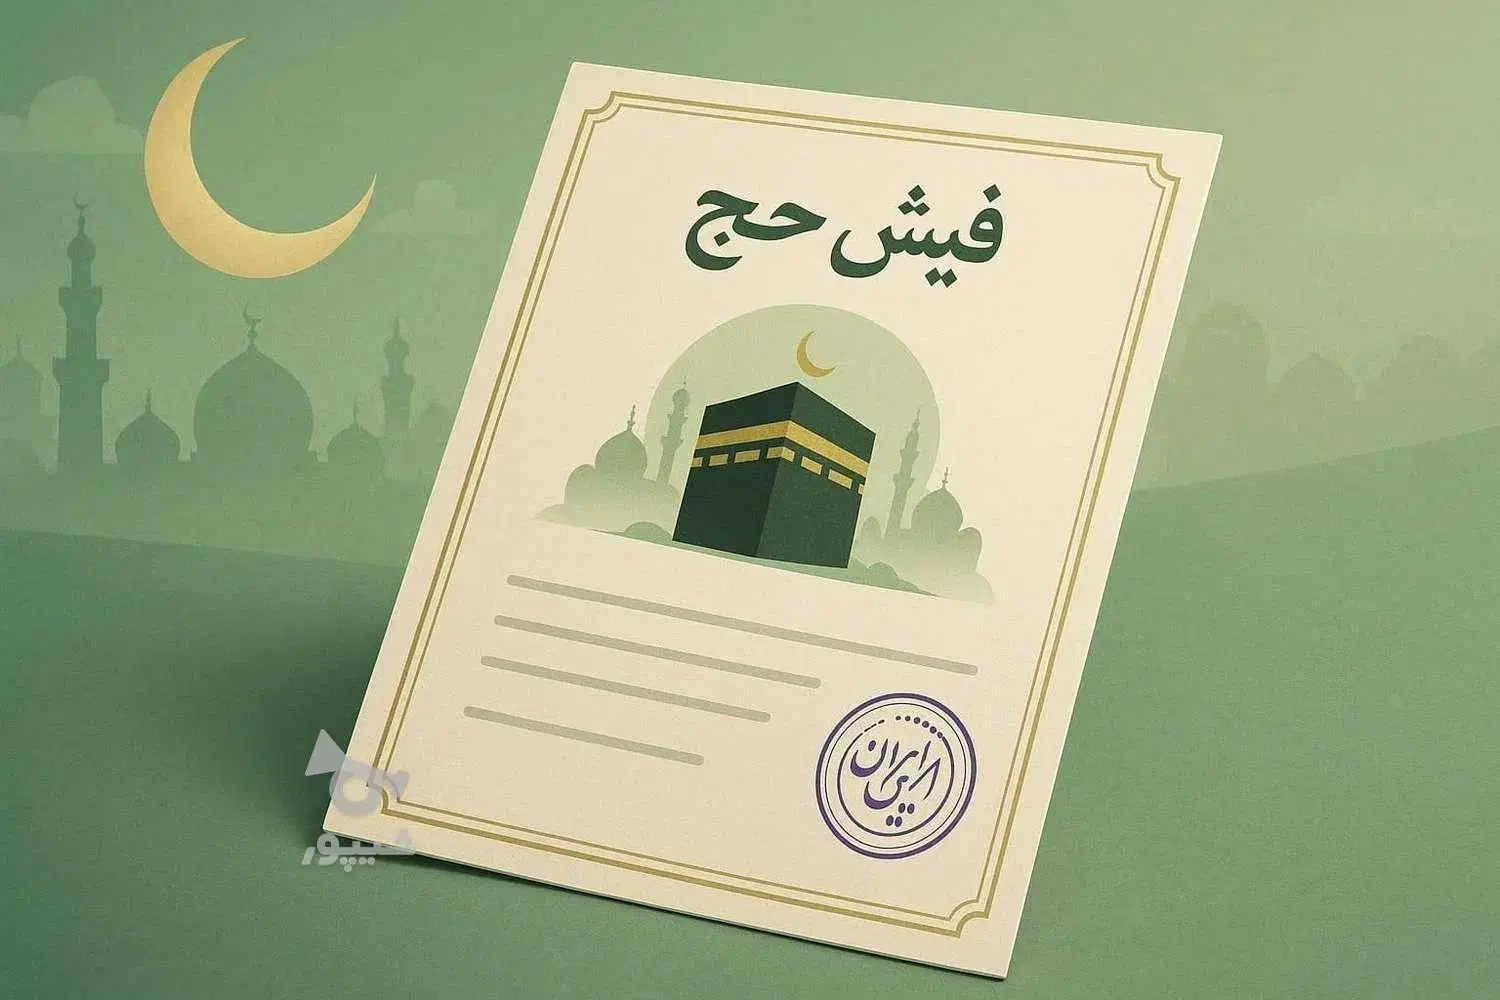 فیش حج
ایران
شیپور